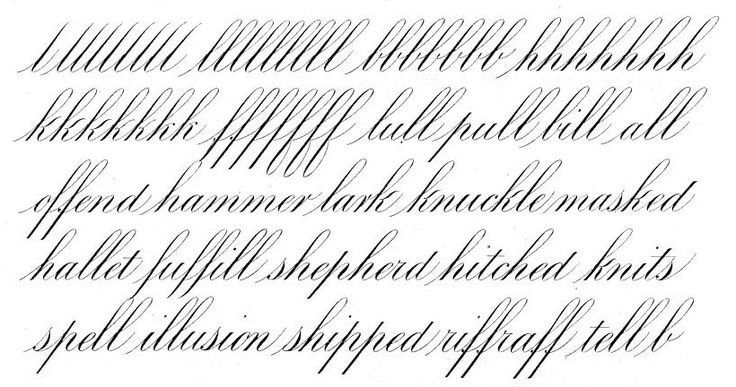 l llllllll lllllllll bbbbbbb hhhhhhh
kkkkkkk fffffff lull pull bill all
offend hammer lark knuckle masked
hallet fulfill shepherd hitched knits
spell illusion shipped riffraff tell b